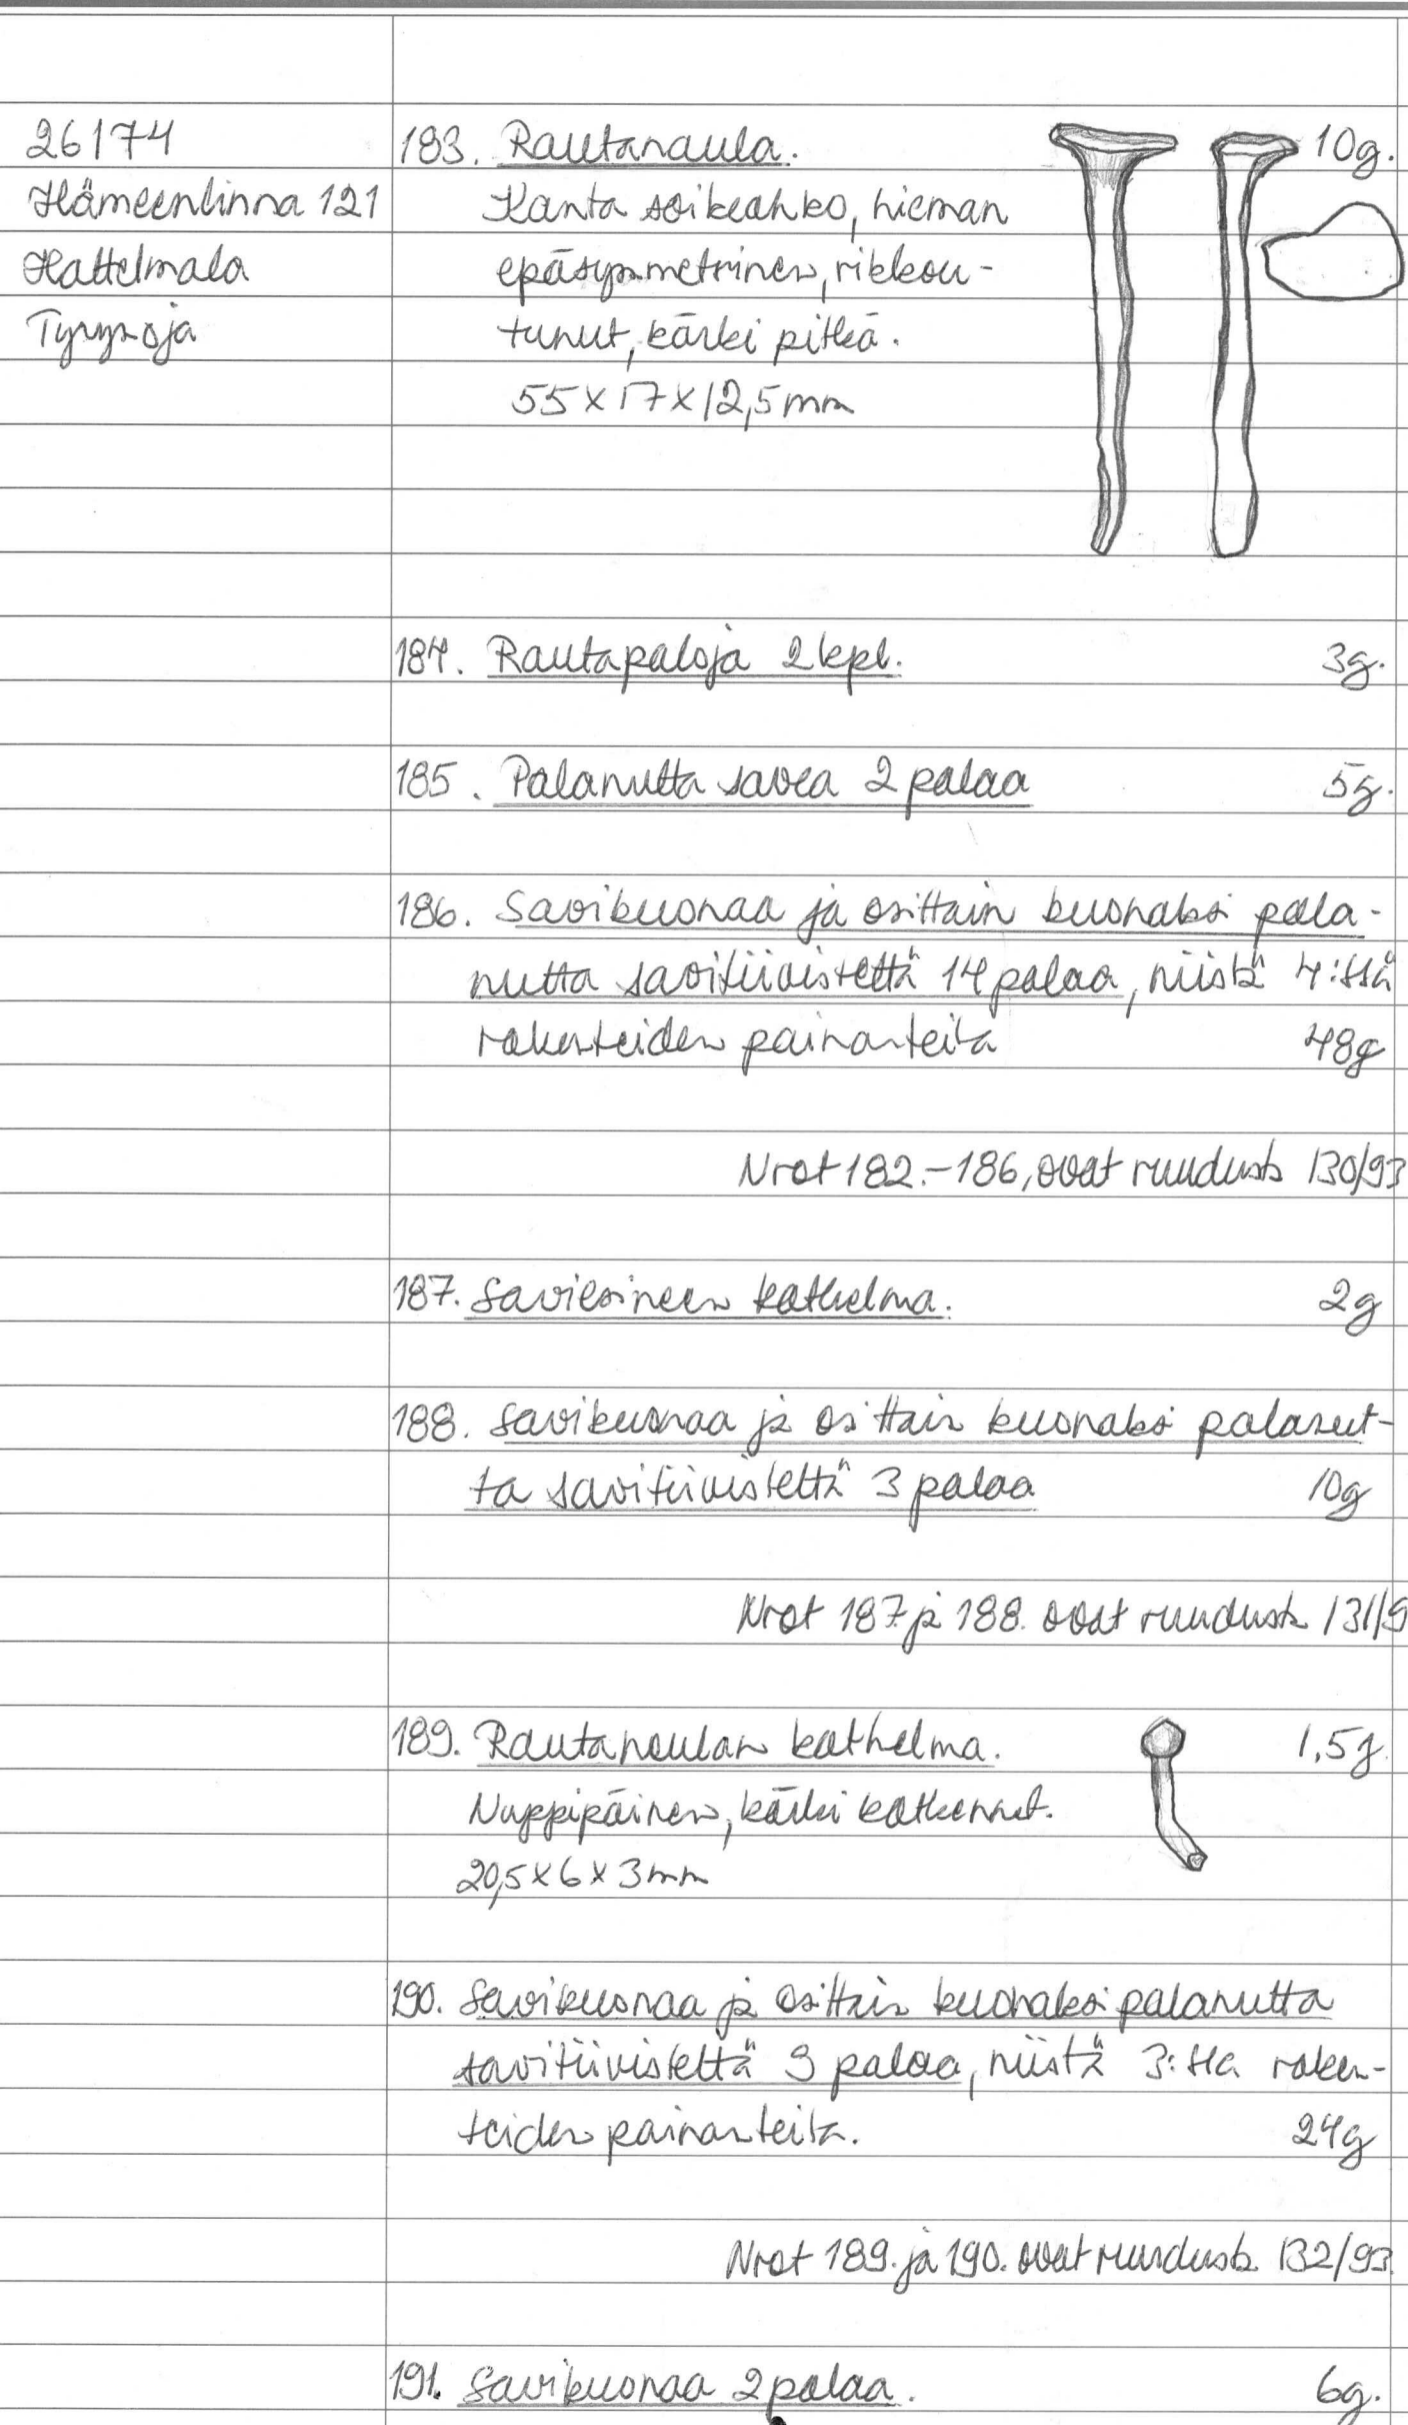 26174
Hämeenlinna 121
Hattelmala
Tyrynoja
183. Rautanaula. 10g.
Kanta soikeahko, hieman
epäsymmetrinen, rikkou-
tunut, kärki pitkä.
55x17x12,5mm
184. Rautapaloja 2kpl. 3g.
185. Palanutta savea 2 palaa 5g.
186. Savikuonaa ja osittain kuonaksi pala-
nutta savitiivistettä 14 palaa, niistä 4:ssä
rakenteiden painanteita 48g
Nrot 182.-186, ovat ruudusta 130/93
187. Saviesineen katkelma. 2g
188. Savikuonaa ja osittain kuonaksi palanut-
ta savitiivistettä 3 palaa 10g
Nrot 187. ja 188. ovat ruudusta 131/9
189. Rautanaulan katkelma. 1,5g.
Nuppipäinen, kärki katkennut.
20,5x6x3mm
190. Savikuonaa ja osittain kuonaksi palanutta
savitiivistettä 9 palaa, niistä 3:ssa raken-
teiden painanteita. 24g
Nrot 189. ja 190. ovat ruudusta 132/93.
191. Savikuonaa 2 palaa. 6g.